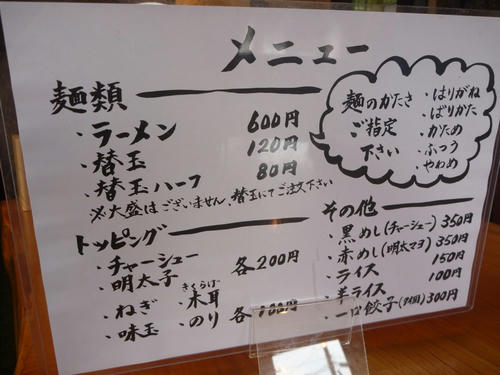 メニュー
麺類
・ラーメン 600円
・替玉 120円
・替玉ハーフ 80円
※大盛はございません、替玉にてご注文下さい
麺のかたさ
ご指定
下さい
・はりがね
・ばりかた
・かため
・ふつう
・やわめ
トッピング
・チャーシュー
・明太子
各200円
・ねぎ
・味玉
きくらげ
・木耳
・のり
各100円
その他
・黒めし(チャーシュー) 350円
・赤めし(明太マヨ) 350円
・ライス 150円
・半ライス 100円
・一口餃子 300円